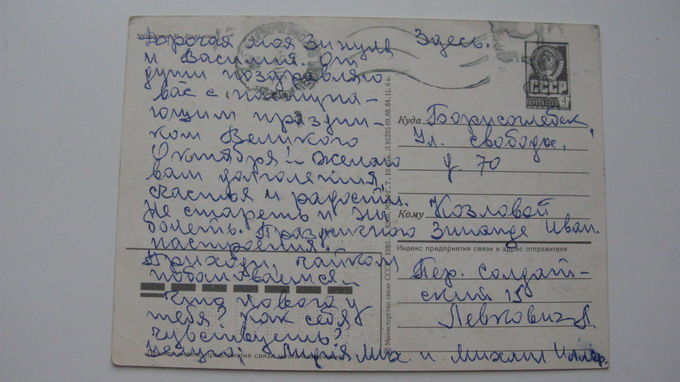 Дорогая моя Зинуля
и Василий. От
души поздравляю
вас с наступа-
ющим праздни-
ком Великого
Октября! Желаю
вам долголетия,
счастья и радости.
Не стареть и не
болеть. Праздничного
настроения.
Приходи чайком
побалуемся.
Что нового у
тебя? Как себя
чувствуешь?
Мих. и Михаил
Здесь.
СССР
Куда Борисоглебск
Ул. Свободы,
д. 70
Кому Козловой
Зинаиде Иван.
Индекс предприятия связи и адрес отправителя
Пер. Солдат-
ский 15
Левкович
© Министерство связи СССР